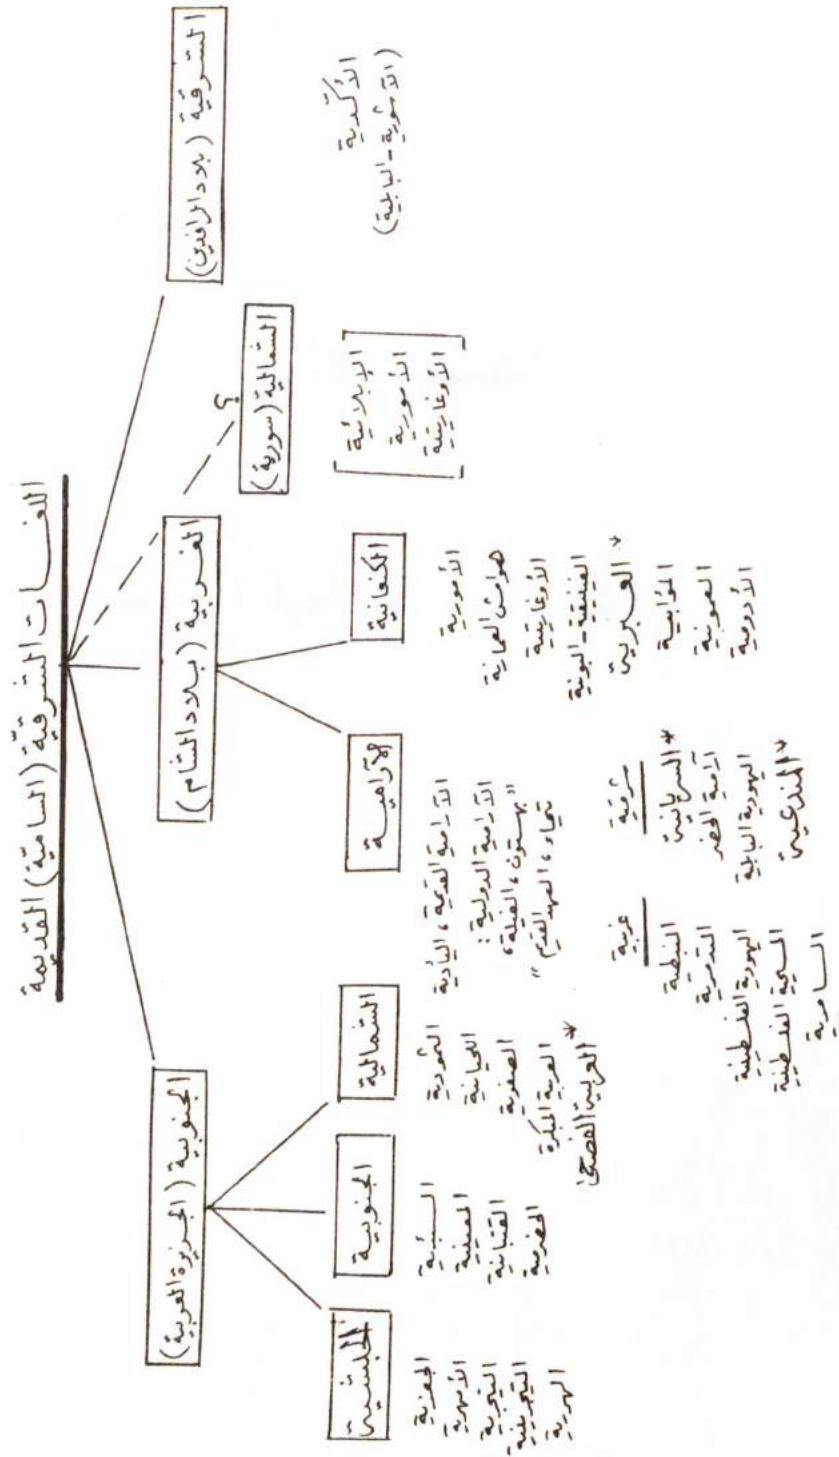 اللغات الشرقية (السامية) القديمة
الشرقية (بلاد الرافدين)
الأكّدية
(الآشورية - البابلية)
؟
الشمالية (سورية)
الإبلائية
الأمورية
الأوغاريتية
الغربية (بلاد الشام)
الكنعانية
الأمورية
هوامش العمارنة
الأوغاريتية
الفينيقية - البونية
العبرية*
المؤابية
العمونية
الأدومية
الآرامية
الآرامية القديمة، اليأدية
الآرامية الدولية :
"بهستون، الفيلة،
تيماء، العهد القديم"
شرقية
السريانية*
آرامية الحضر
اليهودية البابلية
المندعية*
غربية
النبطية
التدمرية
اليهودية الفلسطينية
المسيحية الفلسطينية
السامرية
الجنوبية (الجزيرة العربية)
الشمالية
الثمودية
اللحيانية
الصفوية
العربية المبكرة
العربية الفصحى*
الجنوبية
السبئية
المعينية
القتبانية
الحضرمية
الحبشية
الجعزية
الأمهرية
التيجرية
التيجرينية
الهررية